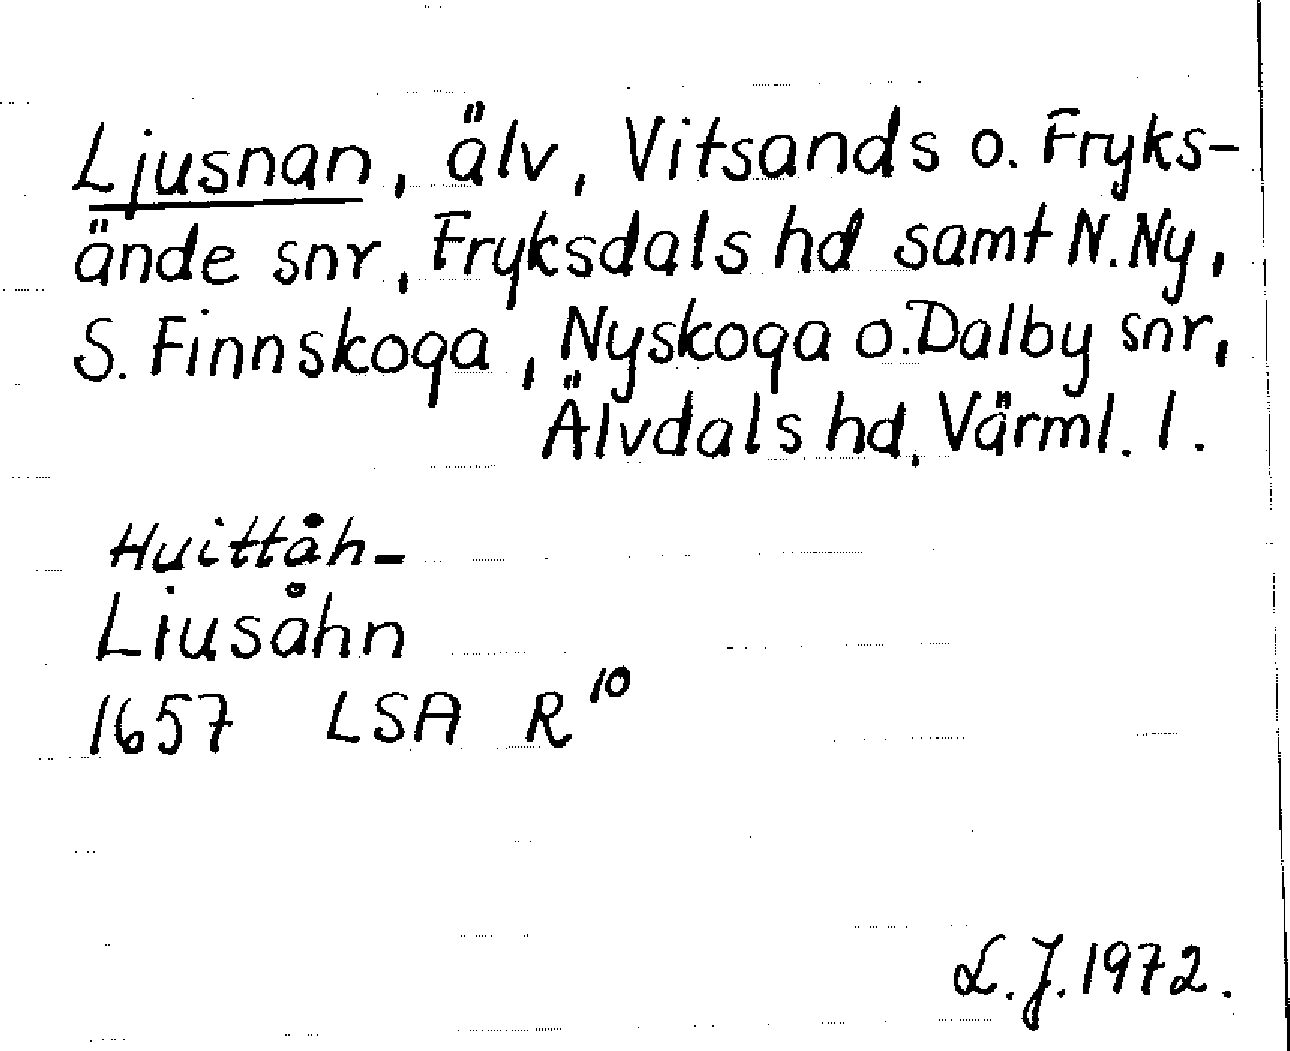 Ljusnan, älv, Vitsands o. Fryks-
ände snr, Fryksdals hd samt N. Ny,
S. Finnskoga, Nyskoga o. Dalby snr,
Älvdals hd, Värml. l.
Huittåh-
Liusåhn
1657 LSA R¹⁰
L. J. 1972.